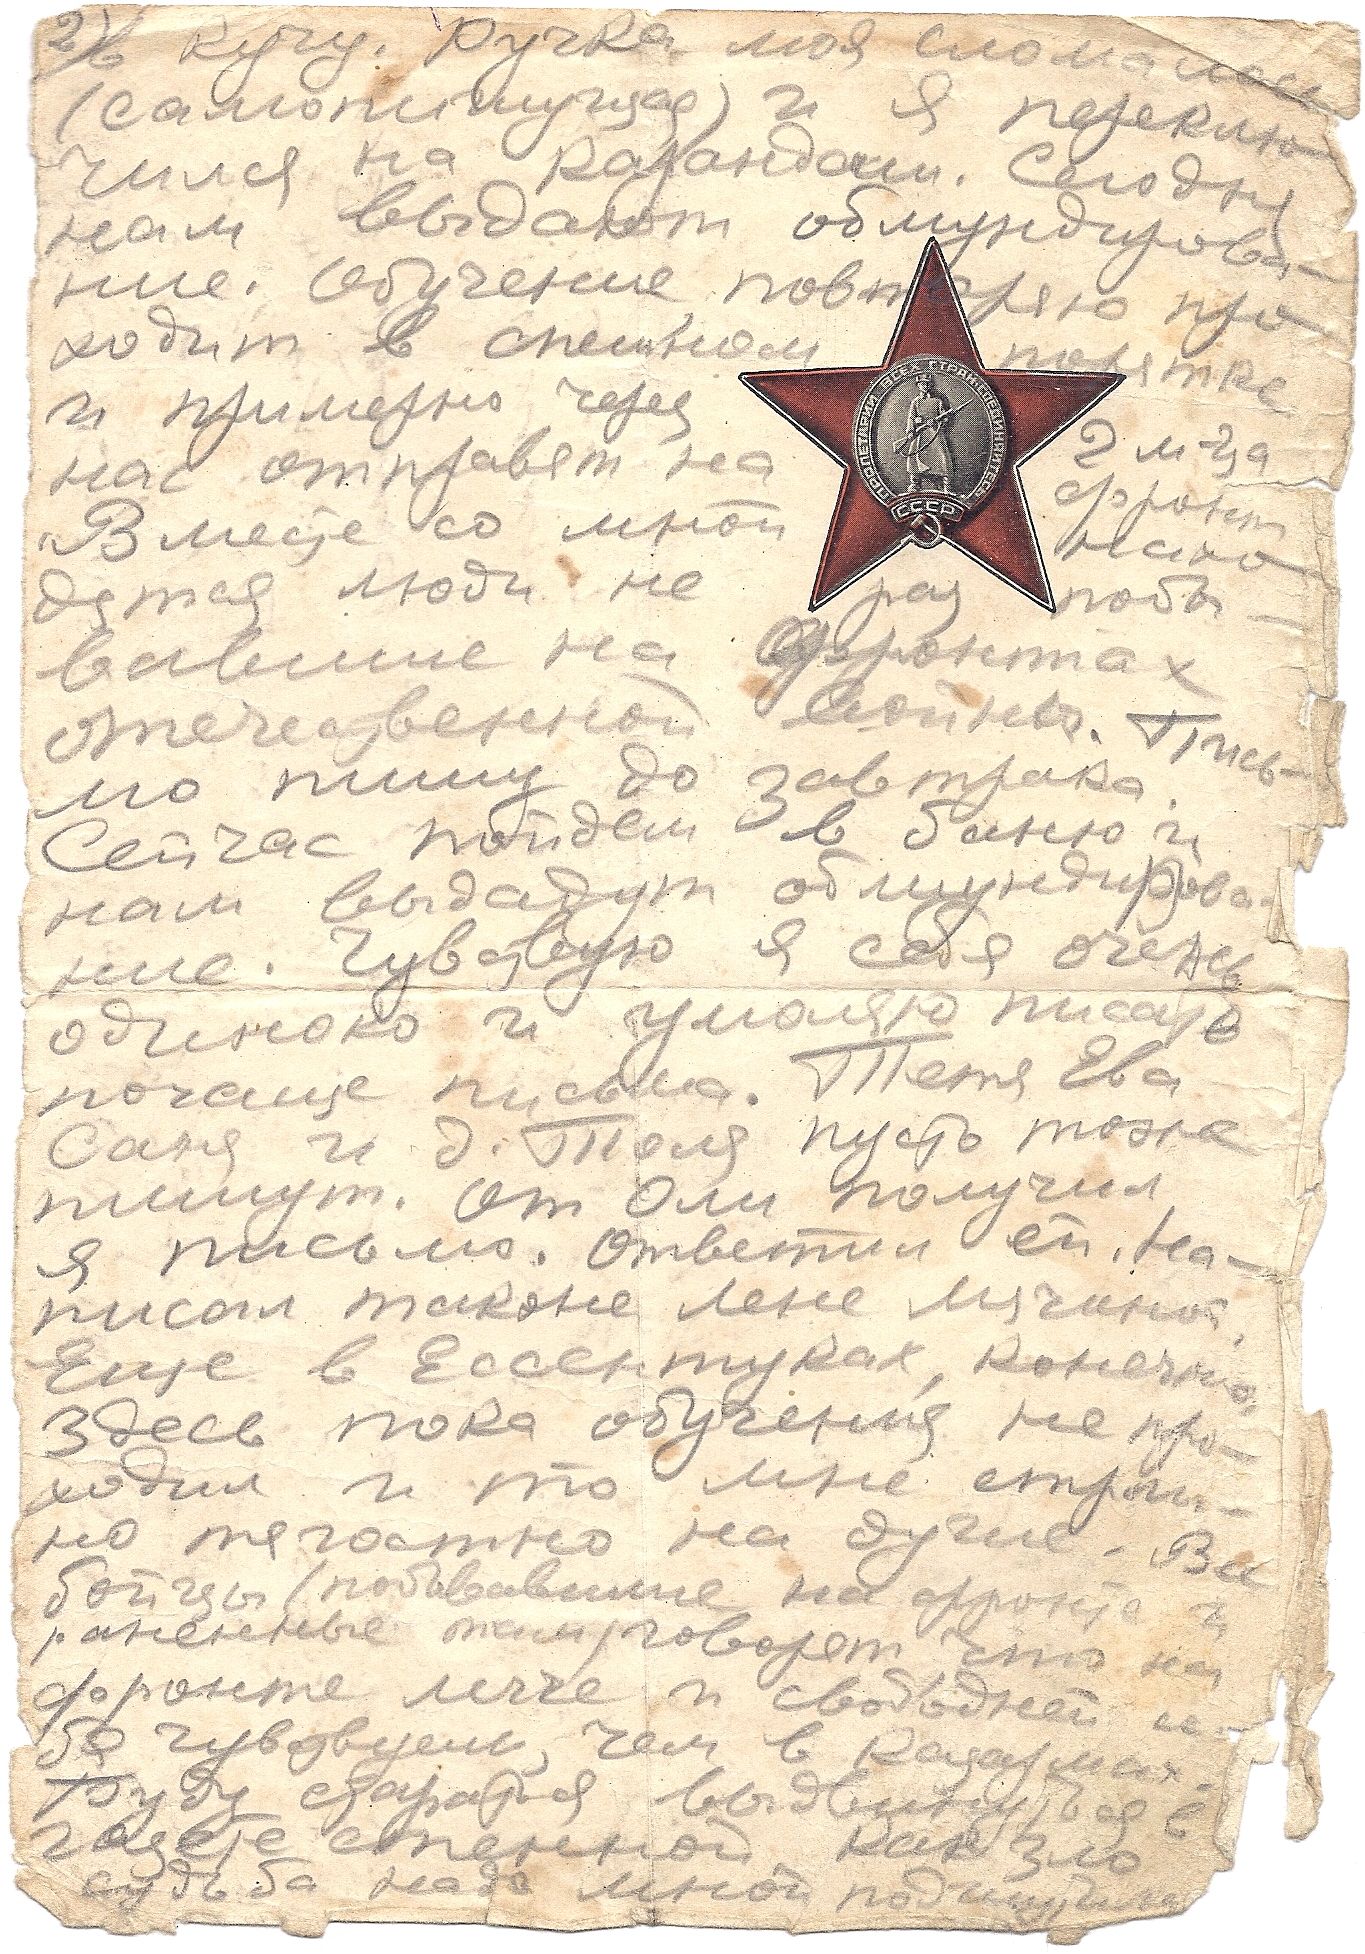 2) в кучу. Ручка моя сломалась
(самопишущая) и я переклю-
чился на карандаш. Сегодня
нам выдают обмундирова-
ние. Обучение, повторяю про
ходит в спешном порятке
и примерно через 2 м-ца
нас отправят на фронт
Вместе со мной нахо
дятся люди не раз побы-
вавшие на фронтах
отечественной войны. Пись-
мо пишу до завтрака.
Сейчас пойдем в баню и
нам выдадут обмундирова-
ние. Чувствую я себя очень
одиноко и умоляю писать
почаще письма. Тетя Ева
Саня и д. Толя пусть тоже
пишут. От Оли получил
я письмо. Ответил ей. На-
писал также Лене Мячиной.
Еще в Ессентуках, конечно,
здесь пока обучения не про-
ходил и то мне страш-
но тягостно на душе. Все
бойцы (побывавшие на фронте и
раненные там) говорят что на
фронте легче и свободней се-
бя чувствуешь, чем в казармах.
Буду старатся выдвинуться в
газете стенной. Как зло
судьба надо мной подшутила
ПРОЛЕТАРИИ ВСЕХ СТРАН СОЕДИНЯЙТЕСЬ
СССР